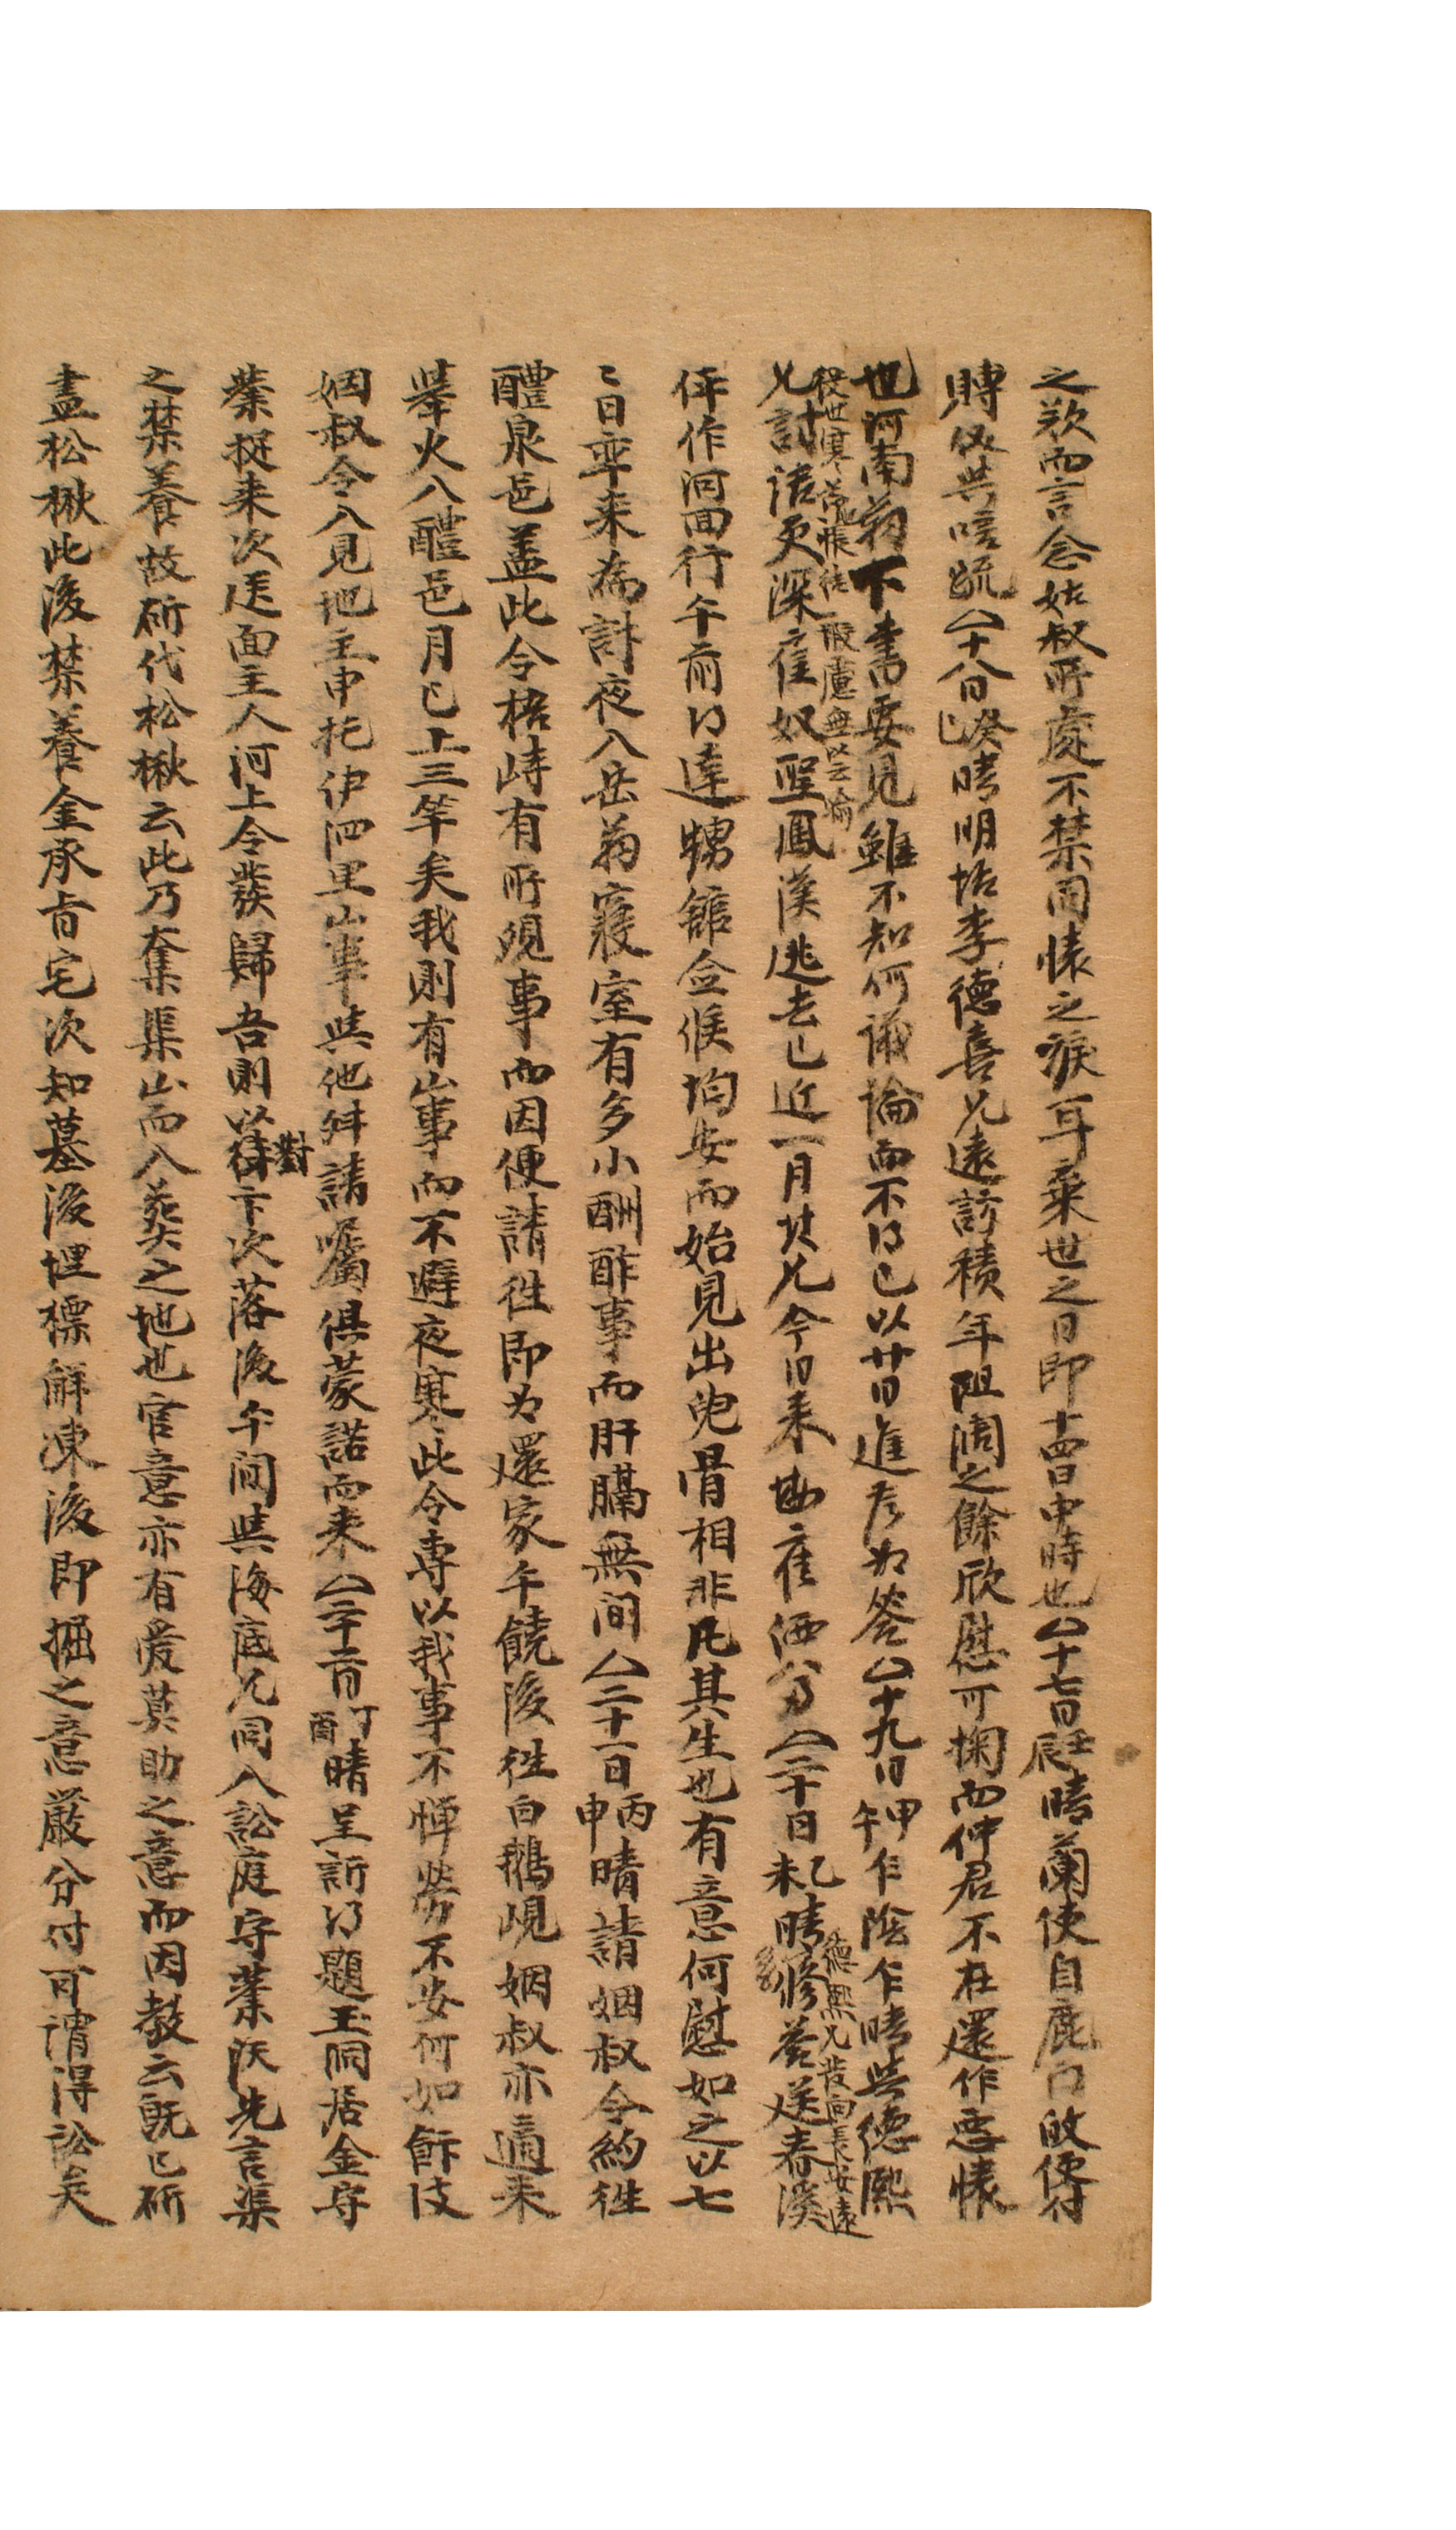 之歎而言念姑叔所處不禁同懷之淚耳棄世之日即十四日申時也△十七日壬辰晴蘭使自鹿門飯便付
賻儀共唁疏△十八日癸巳晴明坮李德喜兄遠訪積年阻濶之餘欣慰可掬而仲君不在還作悪懷
也河南翁下書要見雖不知何議論而不得已以廿日進去为答△十九日甲午乍陰乍晴與德熙
從世寒荒帳徃一般慮無以云喻
兄討話更深雇奴聖鳳漢逃去已近一月其兄今日来故雇洒分△二十日乙未晴修答送春溪
德熙兄發向長安遠
伻作河回行午前得達甥舘僉候均安而始見出兒骨相非凡其生也有意何慰如之以七
〻日率来為計夜入岳翁寢室有多小酬酢事而肝膈無間△二十一日丙申晴請姻叔令約徃
醴泉邑盖此令梧峙有所覌事而因便請徃即为還家午饒後徃白鵝峴姻叔亦適来
举火入醴邑月已上三竿矣我則有山事而不避夜寒此令專以我事不憚勞不安何如餙伎
姻叔令入見地主申托伊泗里山事與他舛請囑俱蒙諾而来△二十二日丁酉晴呈訴得題玉洞居金守
業捉来次送面主人河上令發歸吾則以待對卞次落後午间與海底兄同入訟庭守業伏先言渠
之禁養故斫伐松楸云此乃奪渠山而入葬之地也官意亦有爰莫助之意而因教云既已斫
盡松楸此後禁養金承旨宅次知墓後埋標觧凍後即掘之意嚴分付可謂得訟矣